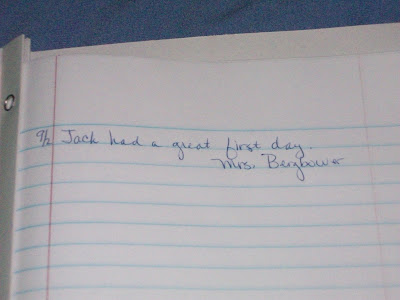 9/2 Jack had a great first day.
Mrs. Bergbower